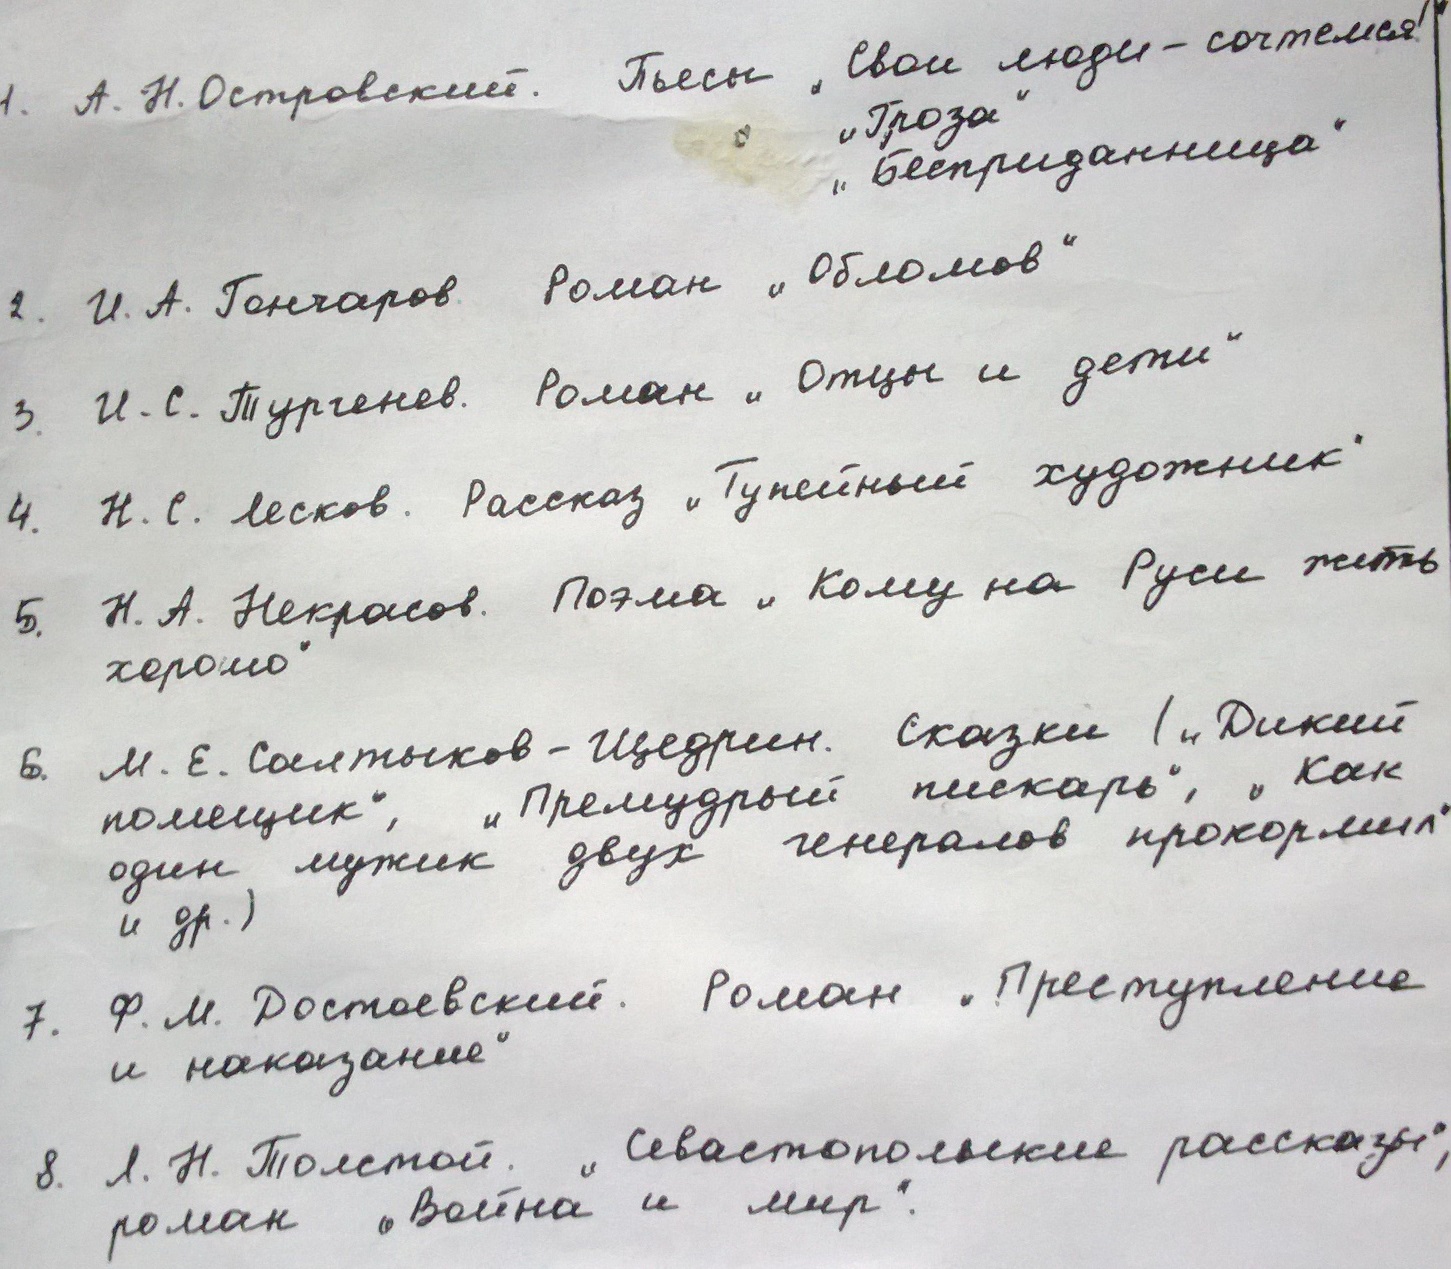 1. А. Н. Островский. Пьесы „Свои люди – сочтемся!"
„Гроза"
„Бесприданница"
2. И. А. Гончаров Роман „Обломов"
3. И. С. Тургенев. Роман „Отцы и дети"
4. Н. С. Лесков. Рассказ „Тупейный художник"
5. Н. А. Некрасов. Поэма „Кому на Руси жить
хорошо"
6. М. Е. Салтыков – Щедрин. Сказки („Дикий
помещик", „Премудрый пискарь", „Как
один мужик двух генералов прокормил"
и др.)
7. Ф. М. Достоевский. Роман „Преступление
и наказание"
8. Л. Н. Толстой. „Севастопольские рассказы",
роман „Война и мир".